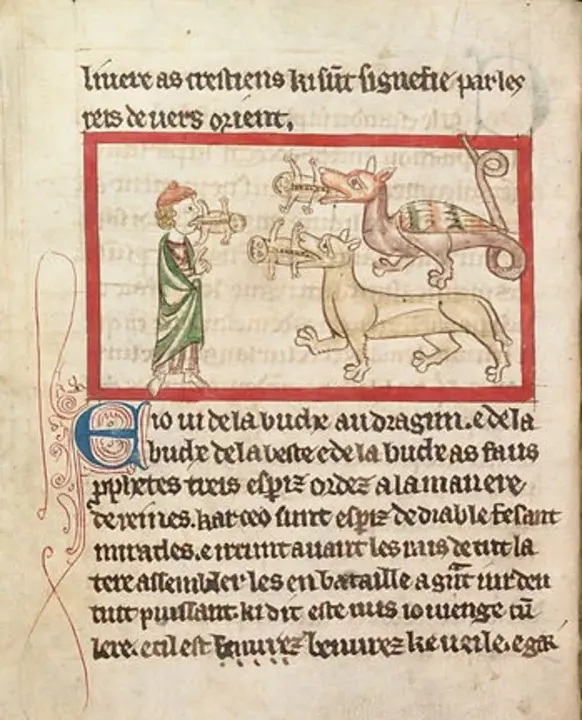 liuere as crestiens ki sūt signefie par les
reis de uers orient.
E io ui de la buche au dragun. e de la
buche de la beste e de la buche as faus
pphetes treis espiz ordez a la manere
de reines. kar ceo sunt espiz de diable fesant
miracles. e irrunt auant les rais de tut la
tere assembler les en bataille a g̃nt iur deu
tut puissant. ki dit este uus io uienge cū
lere. e cil est benurez benurez ke ueile. e gar